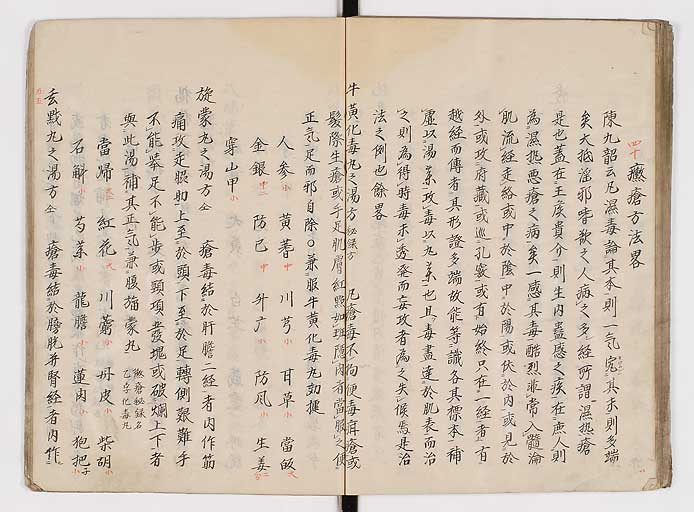 四十 黴瘡方法畧
陳九韶云凡濕毒論其本則一気究其末則多端
矣大抵淫邪皆欲之人病之多経所謂濕熱瘡
是也蓋在王侯貴介則生内蠱惑之疾在庶人則
為濕熱悪瘡之病矣一感其毒酷烈非常入髓淪
肌流経走絡或中於陰中於陽或伏於内或見於
外或攻府藏或巡孔竅或有始終只在一経者有
越経而傳者其形證多端故能等識各其標本補
虚以湯薬攻毒以九薬也且毒盡達於肌表而治
之則為得時毒未透発而妄攻者為之失候焉是治
法之例也餘畧
牛黄化毒丸之湯方 秘録方 凡瘡毒不拘便毒疳瘡或
髪際生瘡或手足肌膚紅點如斑隠内者當服之使
正気足而邪自除○兼服牛黄化毒丸勁捷
人参小 黄蓍中 川芎小 甘草小 當皈大
金銀中 防已中 外广小 防風小 生姜
穿山甲小
旋蒙丸之湯方 瘡毒結於肝膽二経者内作筋
痛攻走服助上至於頭下至於足轉側艱難手
不能挙足不能歩或頸項發塊或破爛上下者
與此湯補其正気兼服旋蒙丸 黴瘡秘録名 乙字化毒丸
當帰 紅花 川薢 丹皮 柴胡
石斛小 芍薬 龍膽小 蓮肉 枸杞子
玄戝丸之湯方 瘡毒結於膀胱并腎経者内作